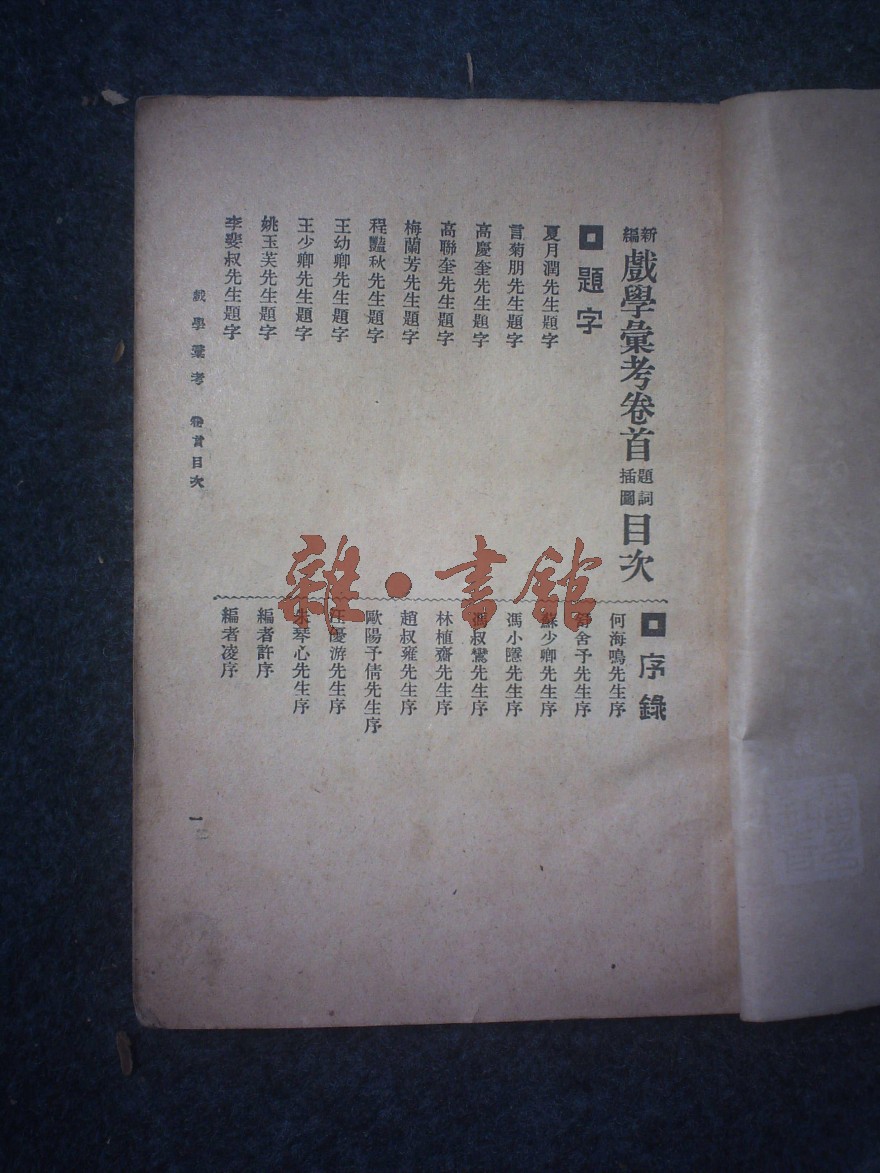 新編戲學彙考卷首題詞插圖目次
題字
夏月潤先生題字
言菊朋先生題字
高慶奎先生題字
高聯奎先生題字
梅蘭芳先生題字
程豔秋先生題字
王幼卿先生題字
王少卿先生題字
姚玉芙先生題字
李斐叔先生題字
序錄
何海鳴先生序
舍予先生序
蘇少卿先生序
馮小隱先生序
馮叔鸞先生序
林植齋先生序
趙叔雍先生序
歐陽予倩先生序
汪優游先生序
朱琴心先生序
編者許序
編者凌序
戲學彙考 卷首目次
一
雜·書館